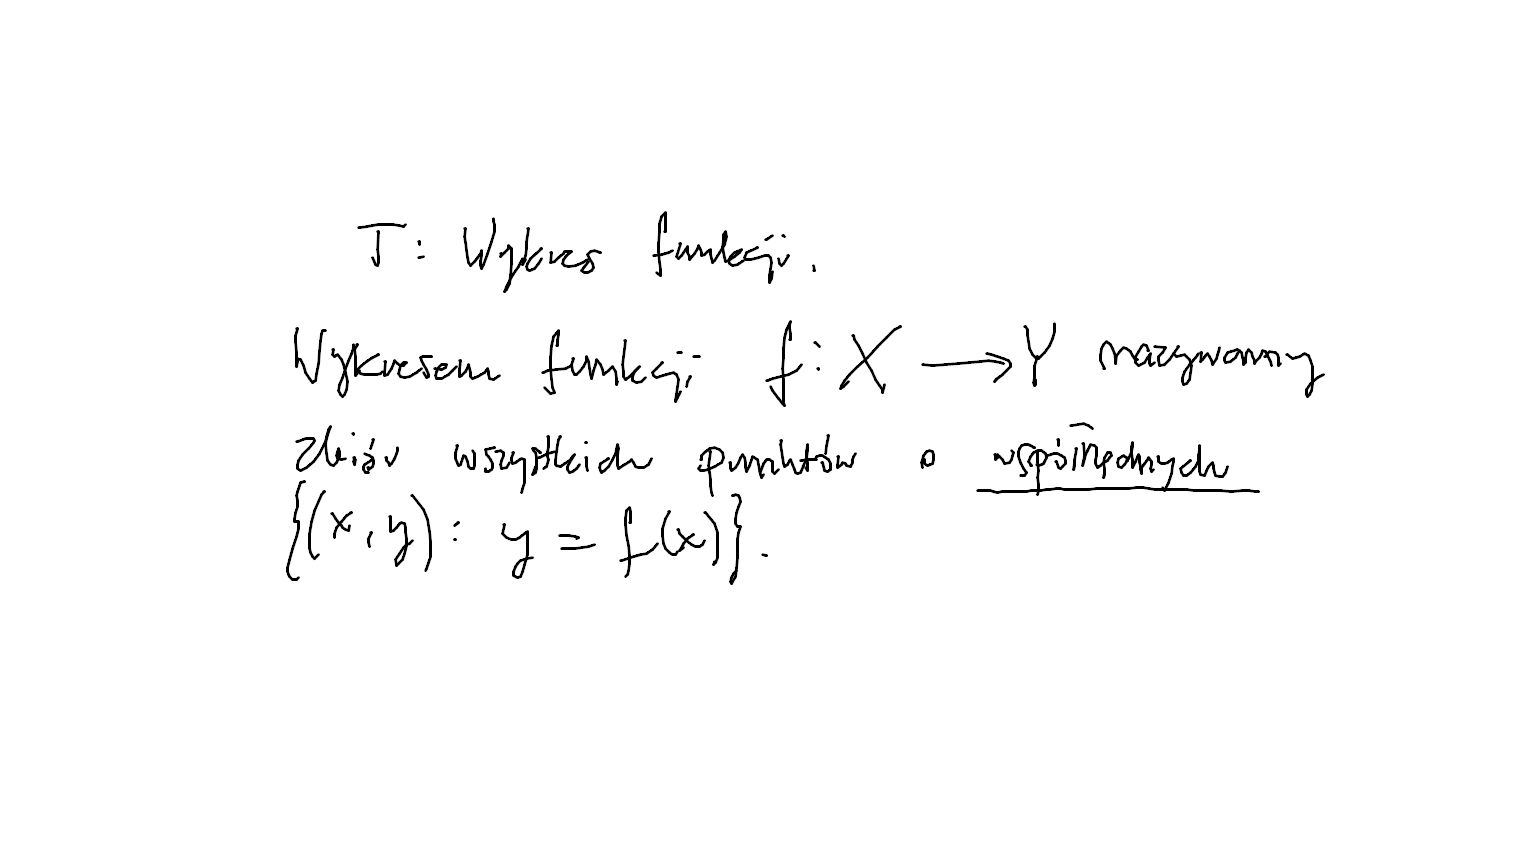 T: Wykres funkcji.
Wykresem funkcji f: X → Y nazywamy
zbiór wszystkich punktów o współrzędnych
{(x, y): y = f(x)}.